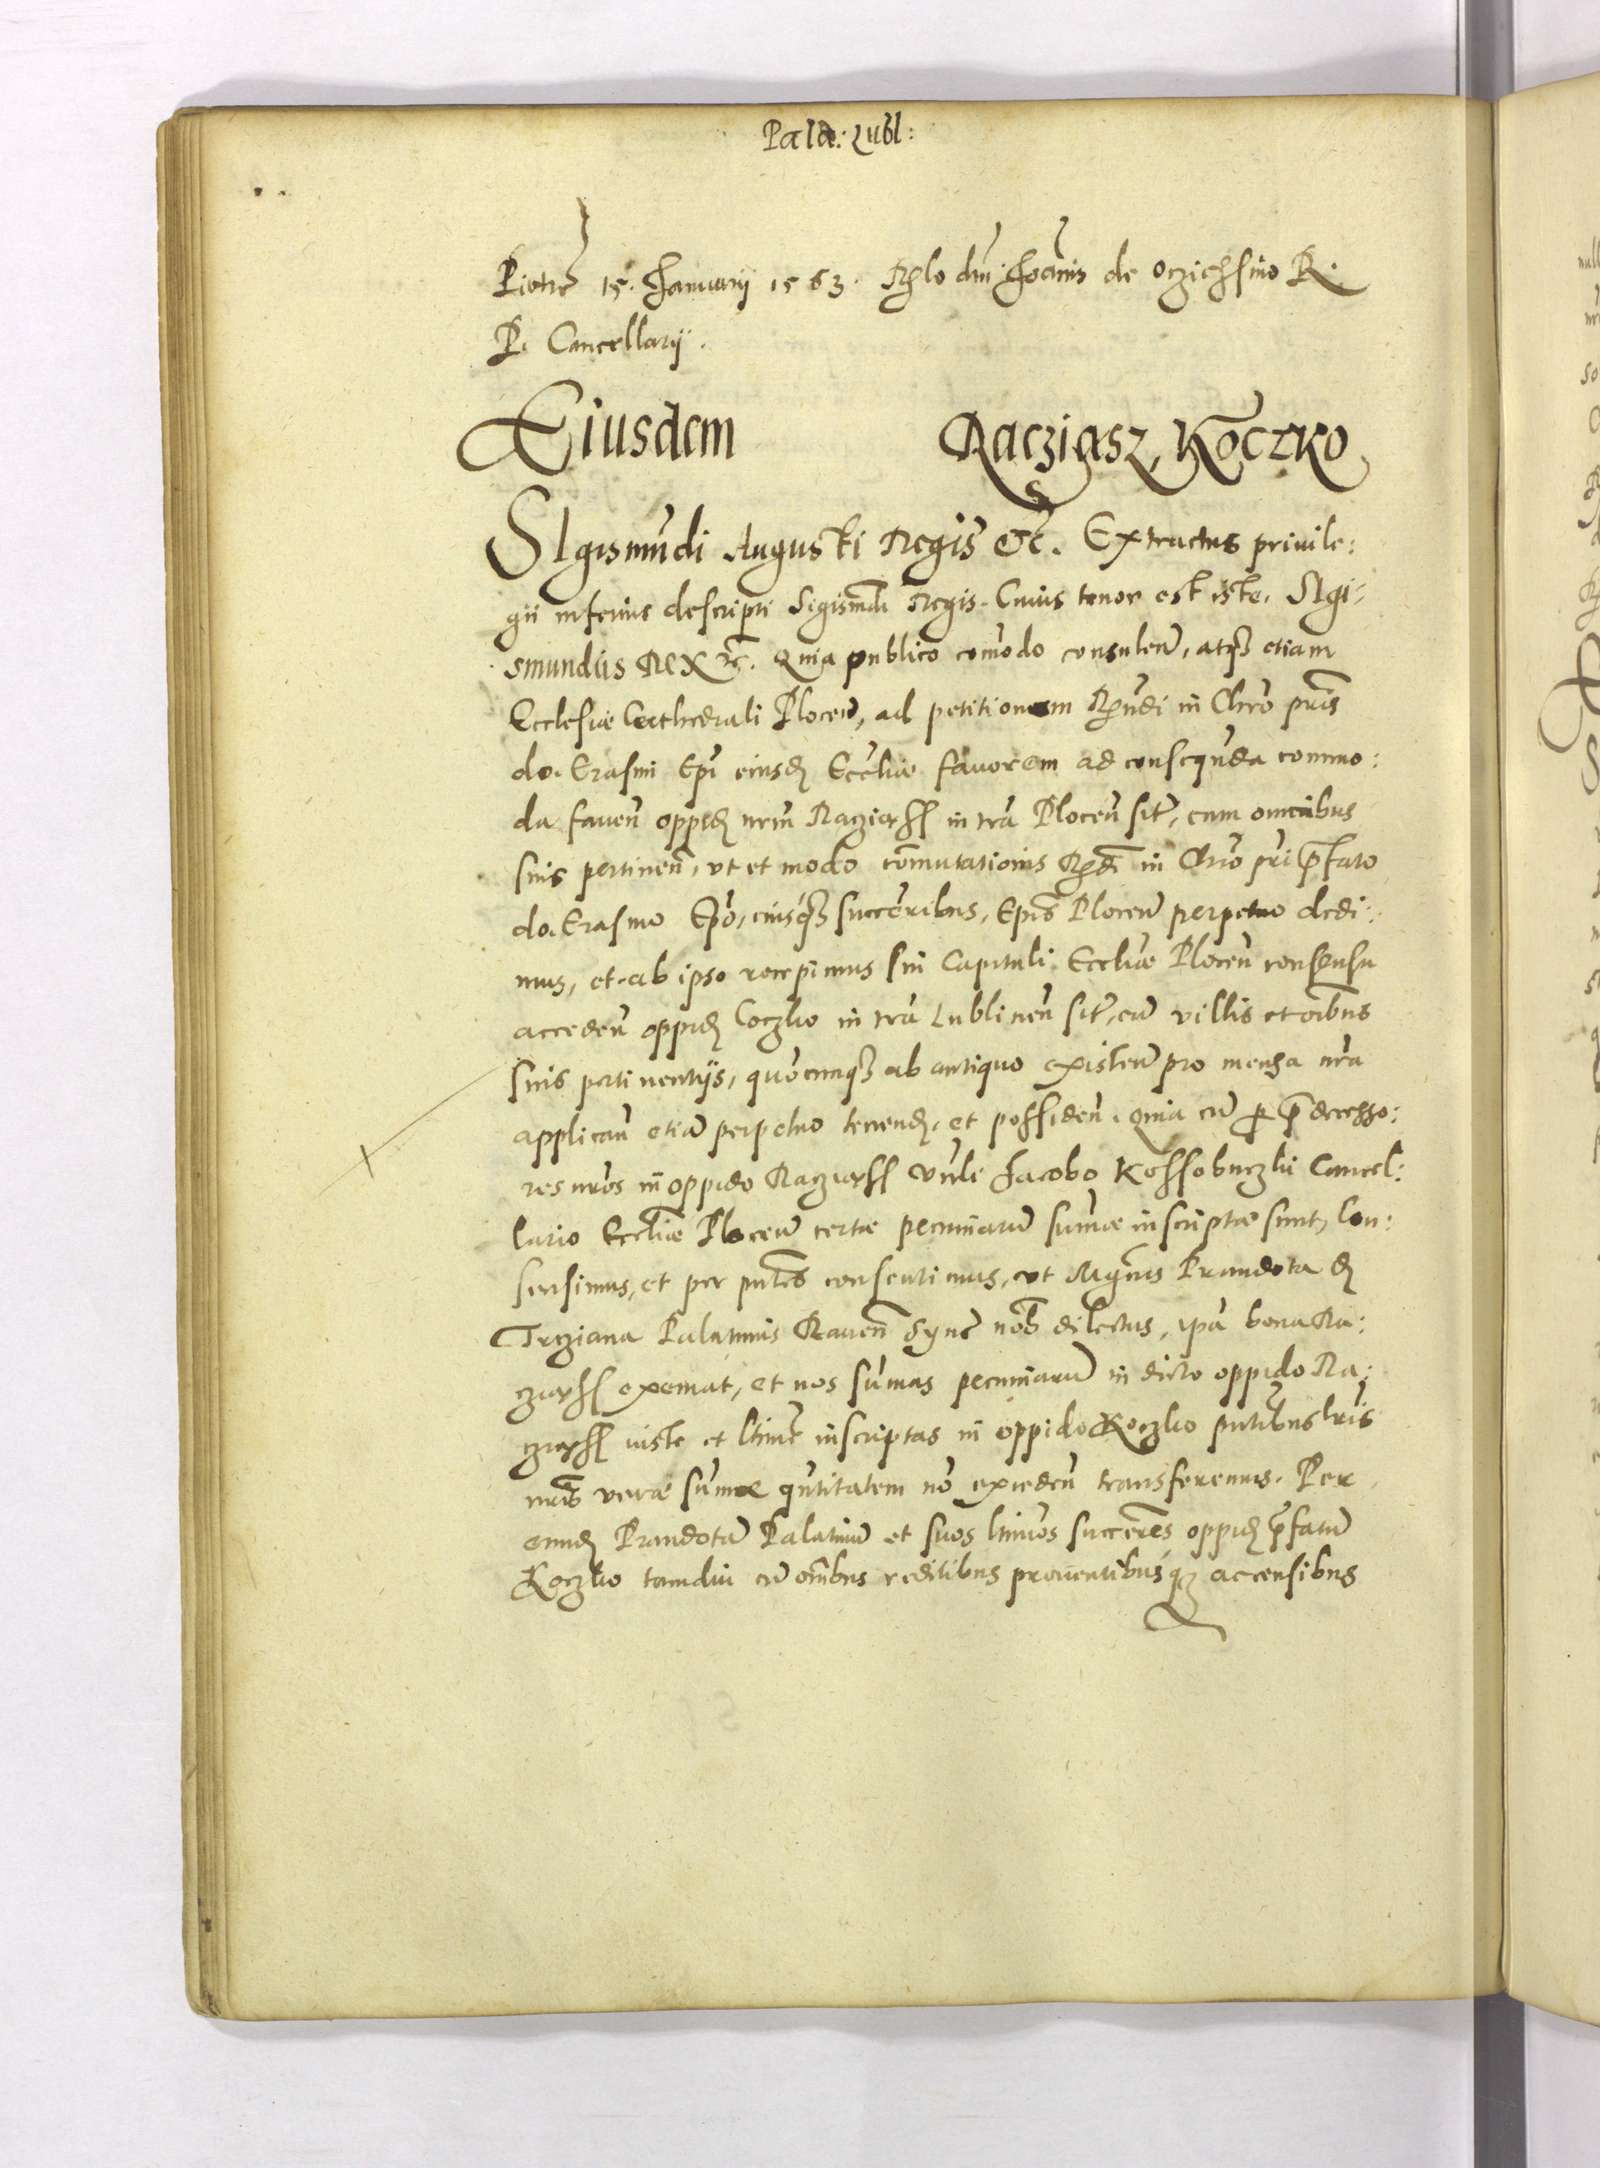 Pala: Lubl:
Piotr 15. Januarij 1563. Rlo dni Joannis de Oczieschino R.
P. Cancellarij.
Eiusdem Racziąsz, Koczko
SIgismūdi Augusti Regis &c. Extractus priuile:
gii inferius descripti Sigismdi Regis. Cuius tenor est iste. SIgi:
smundus REX &c. Quia publico comodo consulen, atq3 etiam
Ecclesiæ Cathedrali Plocen, ad petitionem Rndi in Chro pris
do. Erasmi Epi eiusd Ecclиæ fauorem ad consequda commo:
da fauen oppid nrm Racziąsh in tra Plocen sit, cum omnibus
suis pertinen, vt et modo comutationis Rdi in Chro pri pfato
do. Erasmo Epo, eiusq3 succoribus, Epis Plocen perpetuo dedi:
mus, et ab ipso recepimus sui Capituli Eccliæ Plocen consensu
acceden oppid Coczko in tra Lublinen sit, cu villis et oibus
suis pertinentijs, quocunq3 ab antiquo existen pro mensa nra
applican etia perpetuo tenend, et possiden. Quia cu p pdecesso:
res nros in oppido Racziąsh Vnli Jacobo Kossobuczki Cancel:
lario Eccliæ Plocen certæ pecuniaru summæ inscriptæ sunt, Con:
sensimus, et per pntes consentimus, vt Mgcus Prandota d
Trcziana Palatinus Rauen Syne nob dilectus, ipa bona Ra:
cziąsh eximat, et nos sumas pecuniaru in dicto oppido Ra:
cziąsh iuste et ltime inscriptas in oppido Koczko pntibus lris
nris veræ sumæ qntitatem no exceden transferemus. Per
eund Prandota Palatinu et suos ltimos succores oppid pfatu
Koczko tamdiu cu omibus reditibus prouentibusq3 ac censibus